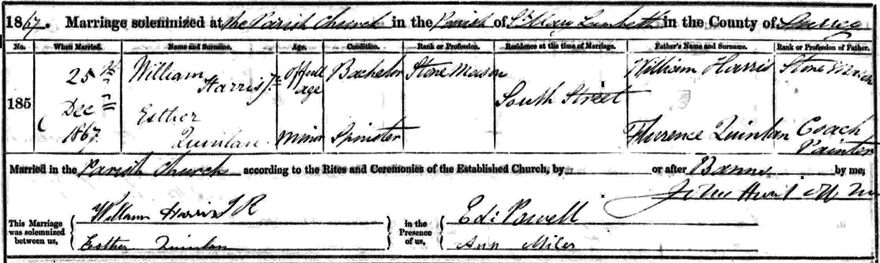 1867. Marriage solemnized at the Parish Church in the Parish of St Mary Lambeth in the County of Surrey
No. When Married. Name and Surname. Age. Condition. Rank or Profession. Residence at the time of Marriage. Father's Name and Surname. Rank or Profession of Father.
185 25th Dec 1867 William Harris Jr Of full age Bachelor Stone Mason South Street William Harris Stone Mason
Esther Quinlan Minor Spinster Florence Quinlan Coach Painter
Married in the Parish Church according to the Rites and Ceremonies of the Established Church, by or after Banns by me,
This Marriage was solemnized between us, William Harris JR Esther Quinlan in the Presence of us, Powell Ann Miles